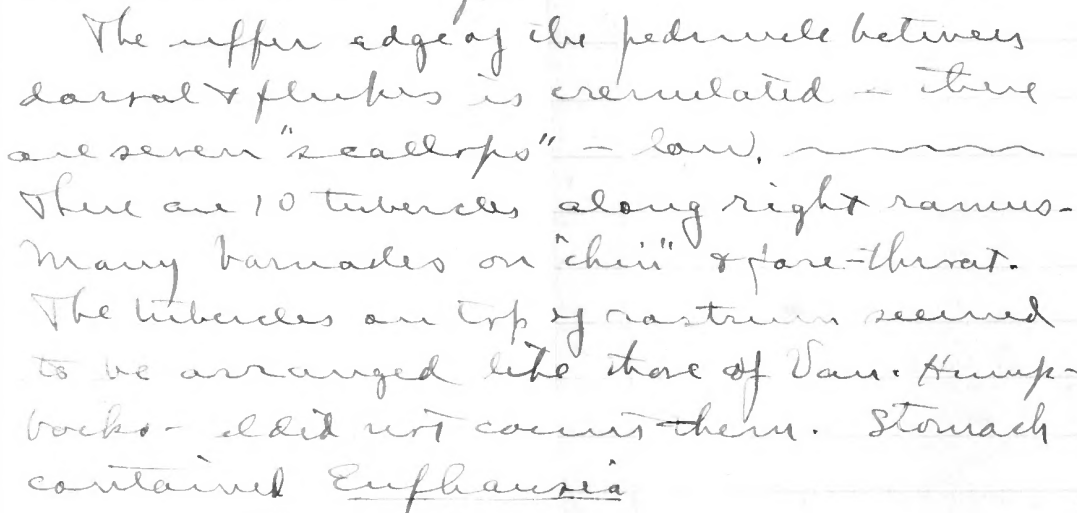 The upper edge of the peduncle between
dorsal & flukes is crenulated – there
are seven "scallops" – low.
There are 10 tubercles along right ramus –
Many barnacles on "chin" & fore-throat.
The tubercles on top of rostrum seemed
to be arranged like those of Van. Hump-
backs – I did not count them. Stomach
contained Euphausia